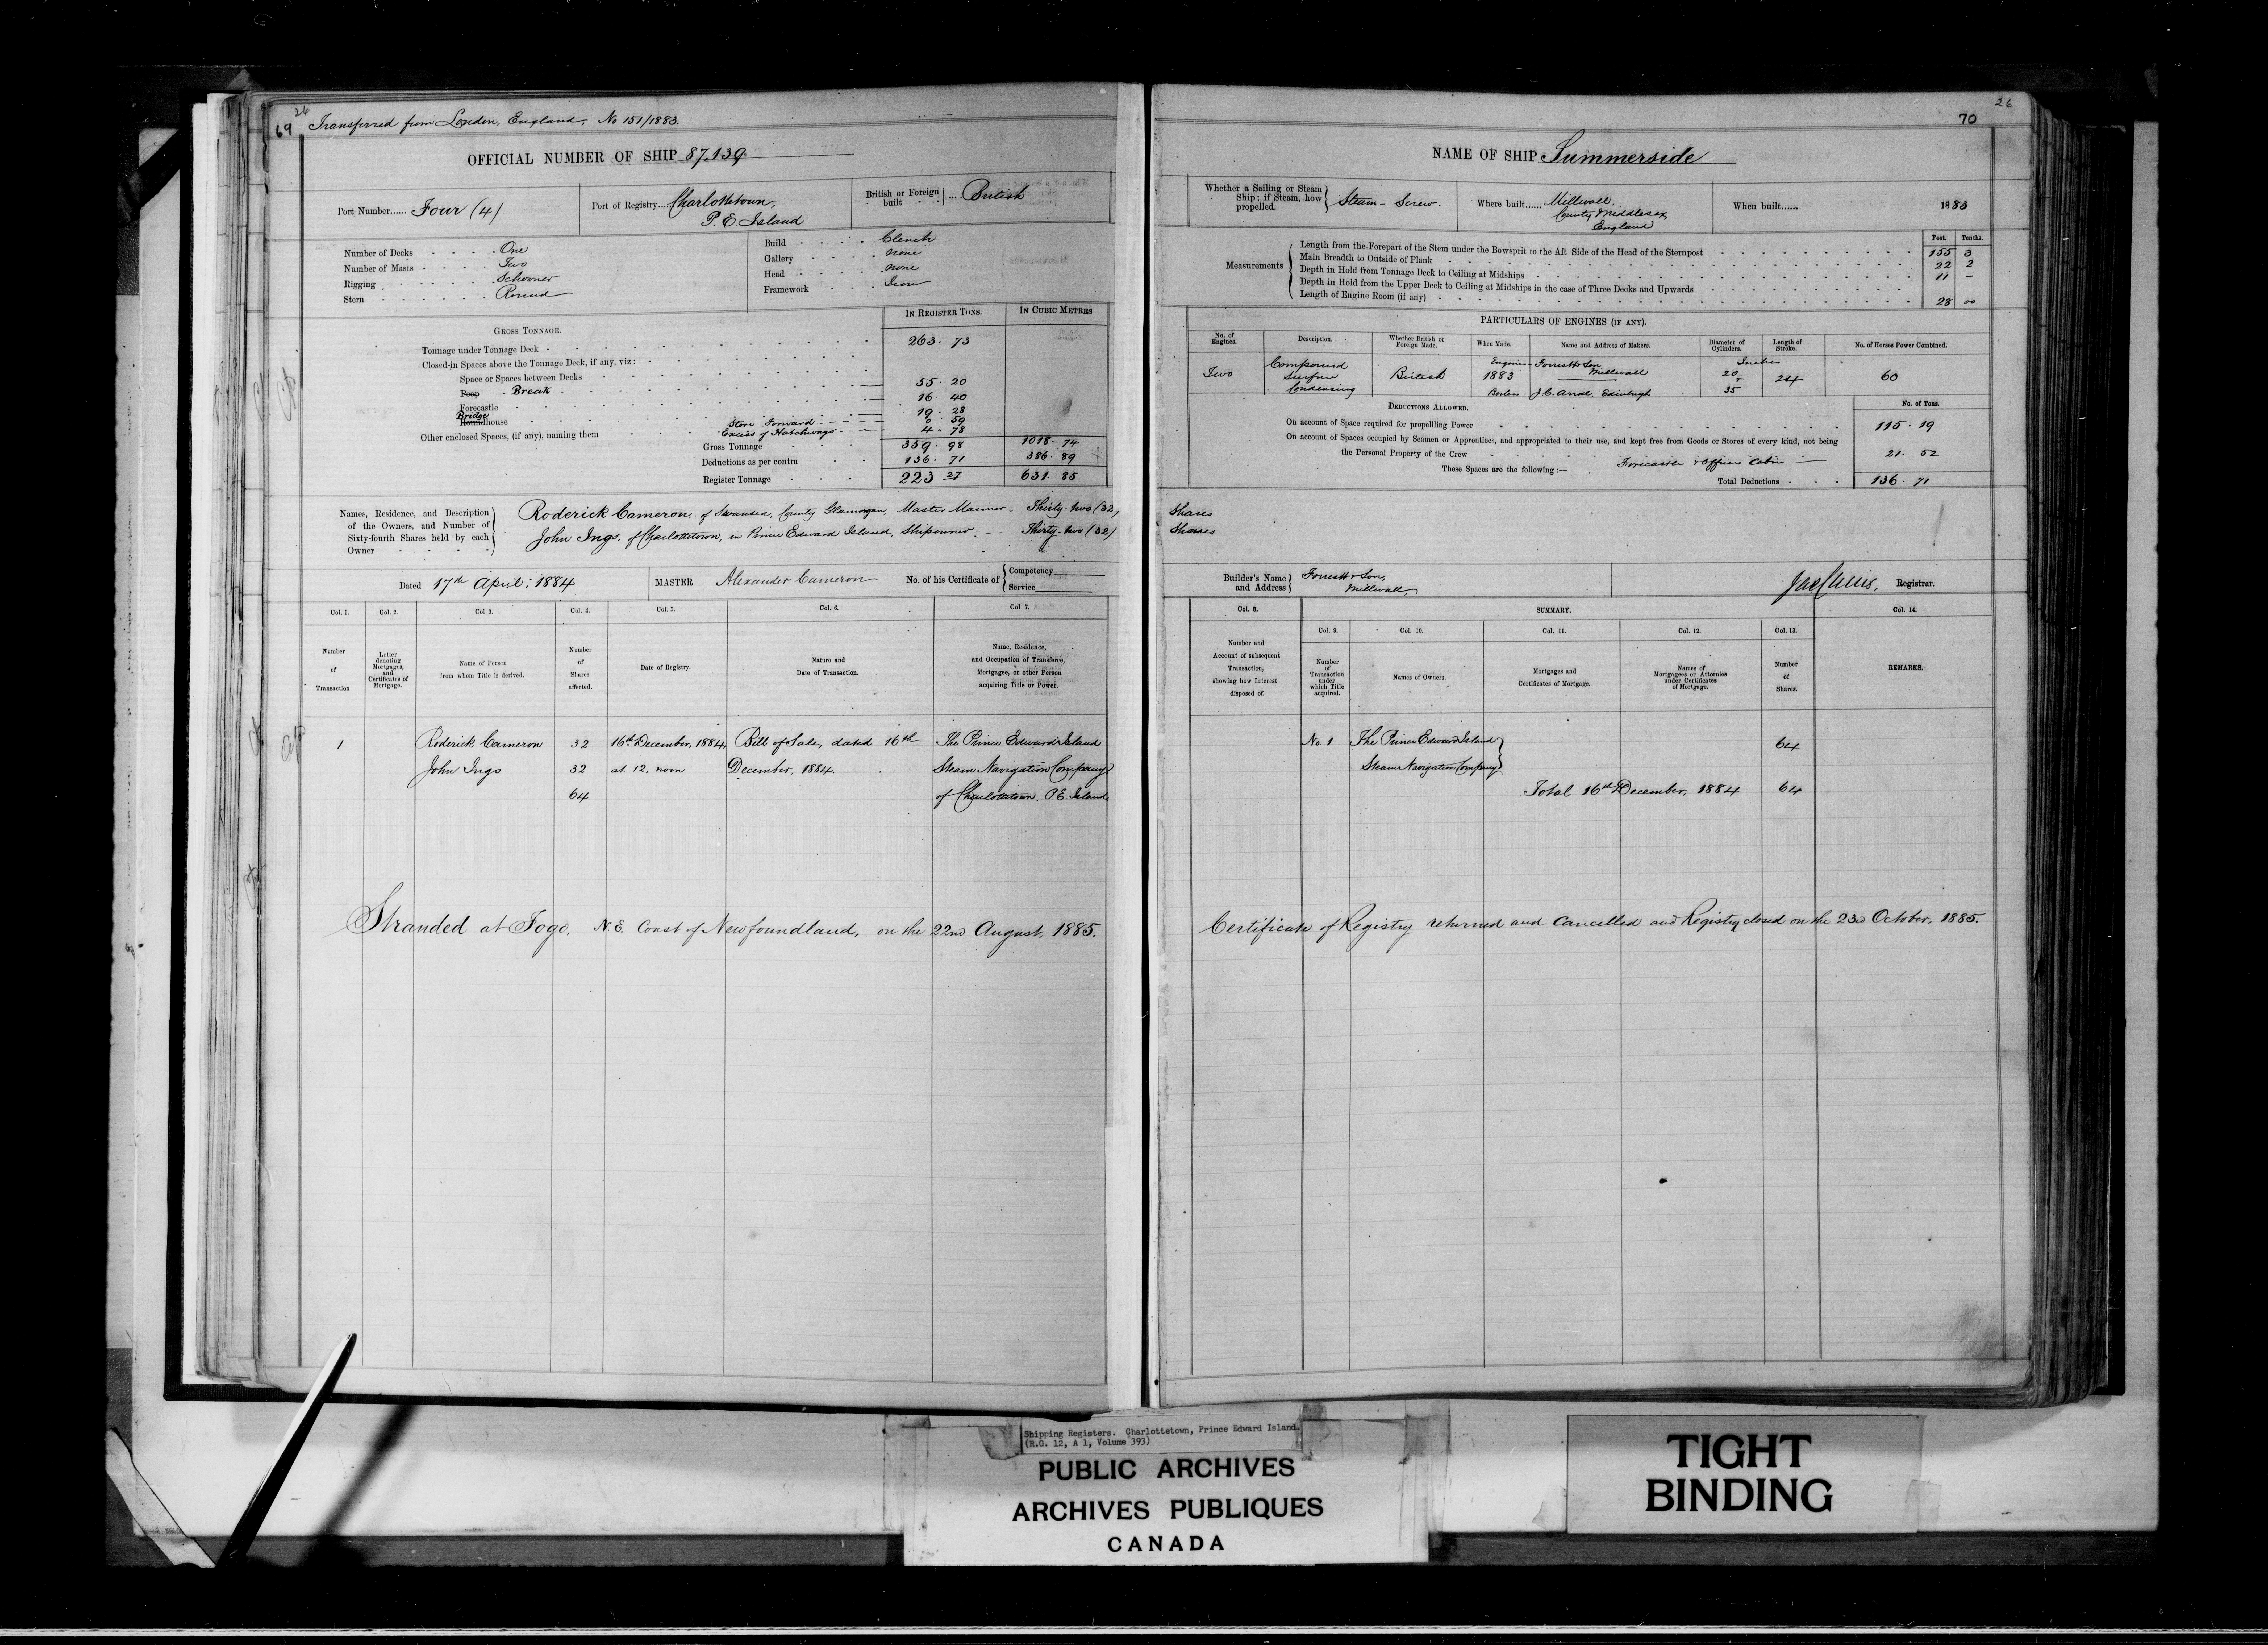 26
69 Transferred from London, England, No 151/1883.
OFFICIAL NUMBER OF SHIP 87,139
Port Number...... Four (4)
Port of Registry.... Charlottetown,
P. E Island
British or Foreign built ... British
Number of Decks One
Number of Masts Two
Rigging Schooner
Stern Round
Build Clench
Gallery none
Head none
Framework Iron
GROSS TONNAGE.
IN REGISTER TONS.
IN CUBIC METRES
Tonnage under Tonnage Deck 263. 73
Closed-in Spaces above the Tonnage Deck, if any, viz:
Space or Spaces between Decks
Poop Break 55. 20
Forecastle 16. 40
Bridge Roundhouse 19. 28
Other enclosed Spaces, (if any), naming them
Store Forward 0. 59
Excess of Hatchways 4. 78
Gross Tonnage 359. 98 1018. 74
Deductions as per contra 136. 71 386. 89
Register Tonnage 223 27 631. 85
Names, Residence, and Description of the Owners, and Number of Sixty-fourth Shares held by each Owner
Roderick Cameron, of Swansea, County Glamorgan, Master Mariner Thirty-two (32) Shares
John Ings, of Charlottetown, in Prince Edward Island, Shipowner Thirty-two (32) Shares
Dated 17th April: 1884
MASTER Alexander Cameron
No. of his Certificate of
Competency
Service
Col. 1.
Col. 2.
Col 3.
Col. 4.
Col. 5.
Col. 6.
Col 7.
Number of Transaction
Letter denoting Mortgages, and Certificates of Mortgage.
Name of Person from whom Title is derived.
Number of Shares affected.
Date of Registry.
Nature and Date of Transaction.
Name, Residence, and Occupation of Transferee, Mortgagee, or other Person acquiring Title or Power.
1 Roderick Cameron 32 16th December, 1884, Bill of Sale, dated 16th The Prince Edward Island
John Ings 32 at 12, noon December, 1884. Steam Navigation Company
64 of Charlottetown, P.E. Island
Stranded at Fogo, N.E. Coast of Newfoundland, on the 22nd August, 1885.
26
70
NAME OF SHIP Summerside
Whether a Sailing or Steam Ship; if Steam, how propelled. Steam - Screw.
Where built...... Millwall,
County Middlesex
England
When built...... 1883
Measurements
Feet. Tenths.
Length from the Forepart of the Stem under the Bowsprit to the Aft Side of the Head of the Sternpost 155 3
Main Breadth to Outside of Plank 22 2
Depth in Hold from Tonnage Deck to Ceiling at Midships 11 –
Depth in Hold from the Upper Deck to Ceiling at Midships in the case of Three Decks and Upwards
Length of Engine Room (if any) 28 00
PARTICULARS OF ENGINES (IF ANY).
No. of Engines.
Description.
Whether British or Foreign Made.
When Made.
Name and Address of Makers.
Diameter of Cylinders.
Length of Stroke.
No. of Horses Power Combined.
Two
Compound Surface Condensing
British
Engines 1883
Forrestt & Son Millwall
Boilers J. C. Arrol, Edinburgh
Inches
20
35
24
60
DEDUCTIONS ALLOWED.
No. of Tons.
On account of Space required for propelling Power 115. 19
On account of Spaces occupied by Seamen or Apprentices, and appropriated to their use, and kept free from Goods or Stores of every kind, not being
the Personal Property of the Crew 21. 52
These Spaces are the following :— Forecastle & Officers Cabin
Total Deductions 136. 71
Builder's Name and Address Forrestt & Son,
Millwall,
Registrar.
Col. 8.
SUMMARY.
Col. 14.
Col. 9.
Col. 10.
Col. 11.
Col. 12.
Col. 13.
Number and Account of subsequent Transaction, showing how Interest disposed of.
Number of Transaction under which Title acquired.
Names of Owners.
Mortgages and Certificates of Mortgage.
Names of Mortgagees or Attornies under Certificates of Mortgage.
Number of Shares.
REMARKS.
No. 1 The Prince Edward Island
Steam Navigation Company 64
Total 16th December, 1884 64
Certificate of Registry returned and cancelled and Registry closed on the 23rd October, 1885.
Shipping Registers. Charlottetown, Prince Edward Island.
(R.G. 12, A 1, Volume 393)
PUBLIC ARCHIVES
ARCHIVES PUBLIQUES
CANADA
TIGHT
BINDING